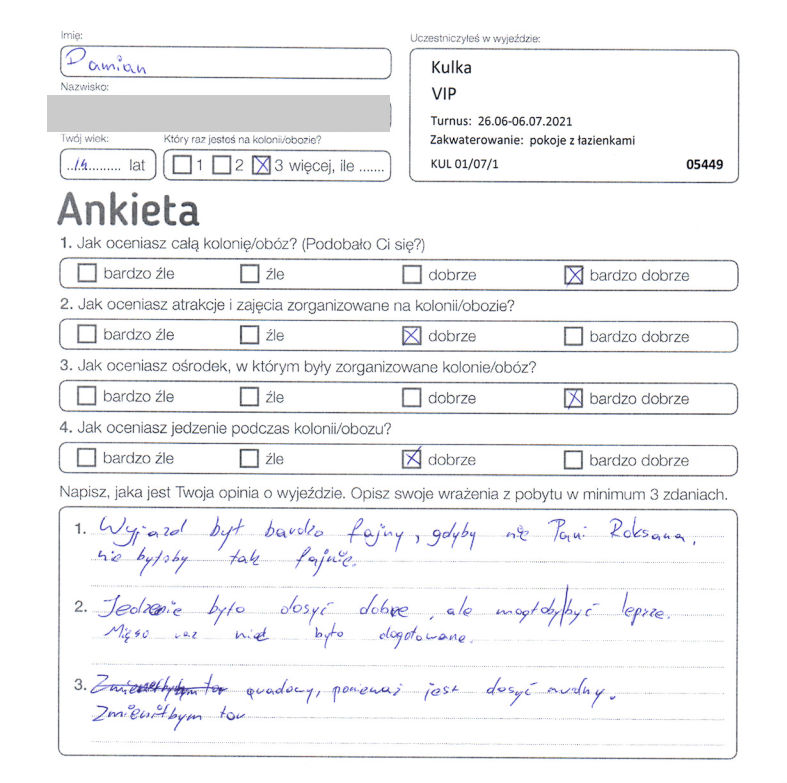 Imię:
Damian
Nazwisko:
Twój wiek:
..14......... lat
Który raz jesteś na kolonii/obozie?
1 2 3 więcej, ile .......
Uczestniczyłeś w wyjeździe:
Kulka
VIP
Turnus: 26.06-06.07.2021
Zakwaterowanie: pokoje z łazienkami
KUL 01/07/1 05449
Ankieta
1. Jak oceniasz całą kolonię/obóz? (Podobało Ci się?)
bardzo źle źle dobrze bardzo dobrze
2. Jak oceniasz atrakcje i zajęcia zorganizowane na kolonii/obozie?
bardzo źle źle dobrze bardzo dobrze
3. Jak oceniasz ośrodek, w którym były zorganizowane kolonie/obóz?
bardzo źle źle dobrze bardzo dobrze
4. Jak oceniasz jedzenie podczas kolonii/obozu?
bardzo źle źle dobrze bardzo dobrze
Napisz, jaka jest Twoja opinia o wyjeździe. Opisz swoje wrażenia z pobytu w minimum 3 zdaniach.
1. Wyjazd był bardzo fajny, gdyby nie Pani Roksana,
nie byłoby tak fajnie.
2. Jedzenie było dosyć dobre, ale mogłoby być lepsze.
Mięso raz nie było dogotowane.
3. Zmieniłbym tor quadowy, ponieważ jest dosyć nudny.
Zmieniłbym tor